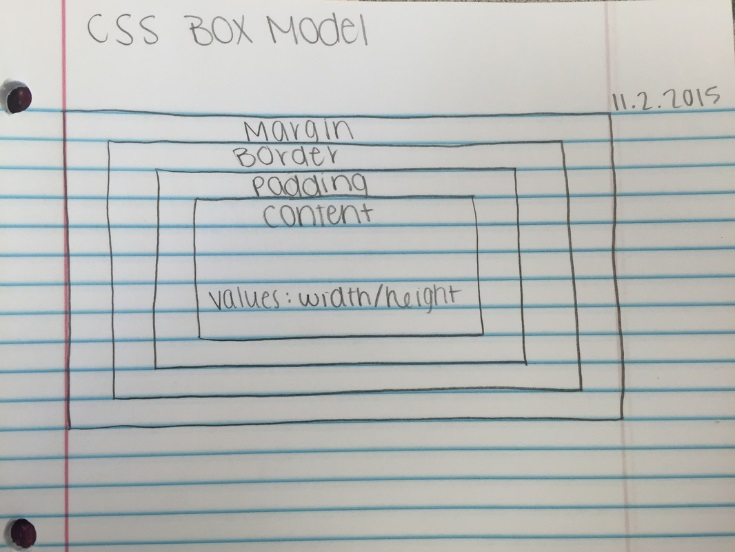 CSS BOX Model
11.2.2015
Margin
Border
padding
content
values: width/height